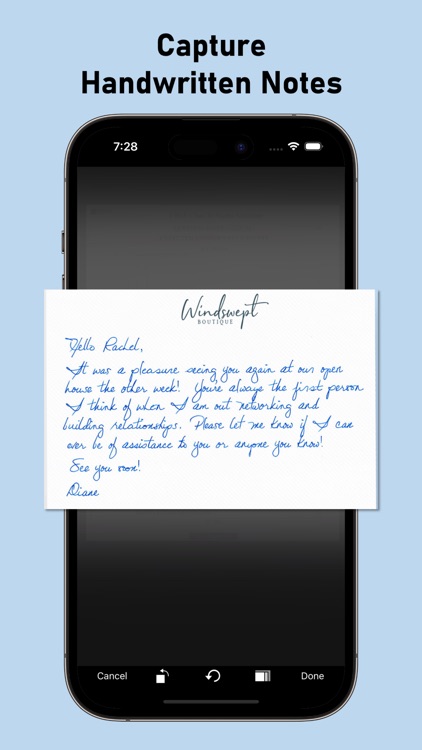 Capture
Handwritten Notes
7:28
Windswept
BOUTIQUE
Hello Rachel,
It was a pleasure seeing you again at our open
house the other week! You're always the first person
I think of when I am out networking and
building relationships. Please let me know if I can
ever be of assistance to you or anyone you know!
See you soon!
Diane
Cancel
Done